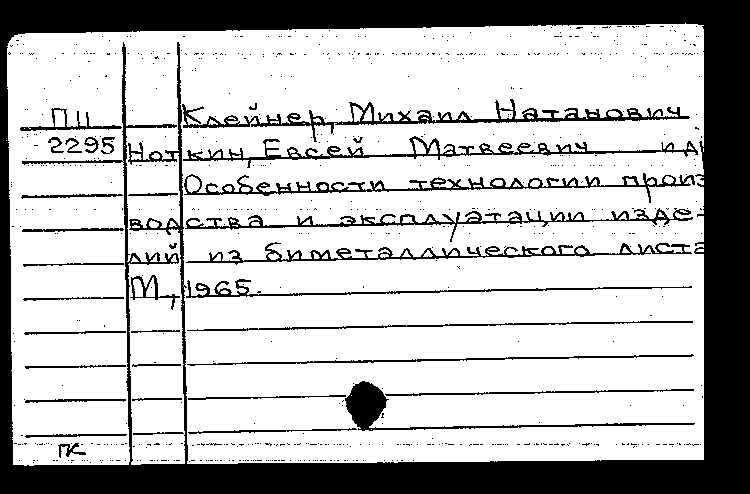 П11 Клейнер, Михаил Натанович
2295 Ноткин, Евсей Матвеевич и др
Особенности технологии произ
водства и эксплуатации изде-
лий из биметаллического листа
М., 1965.
ПК